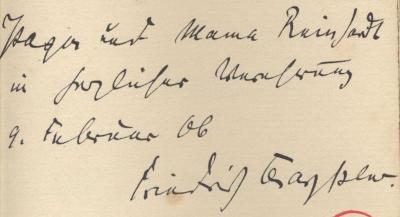 Papa und Mama Reinhardt
in herzlicher Verehrung
9. Februar 06
Friedrich Kayssler.